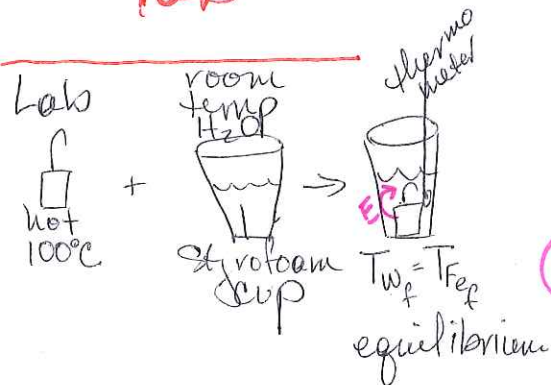 Lab
hot
100°C
+
room
temp
H₂O
Styrofoam
cup
→
thermo
meter
E
T_{w_f} = T_{Fe_f}
equilibrium